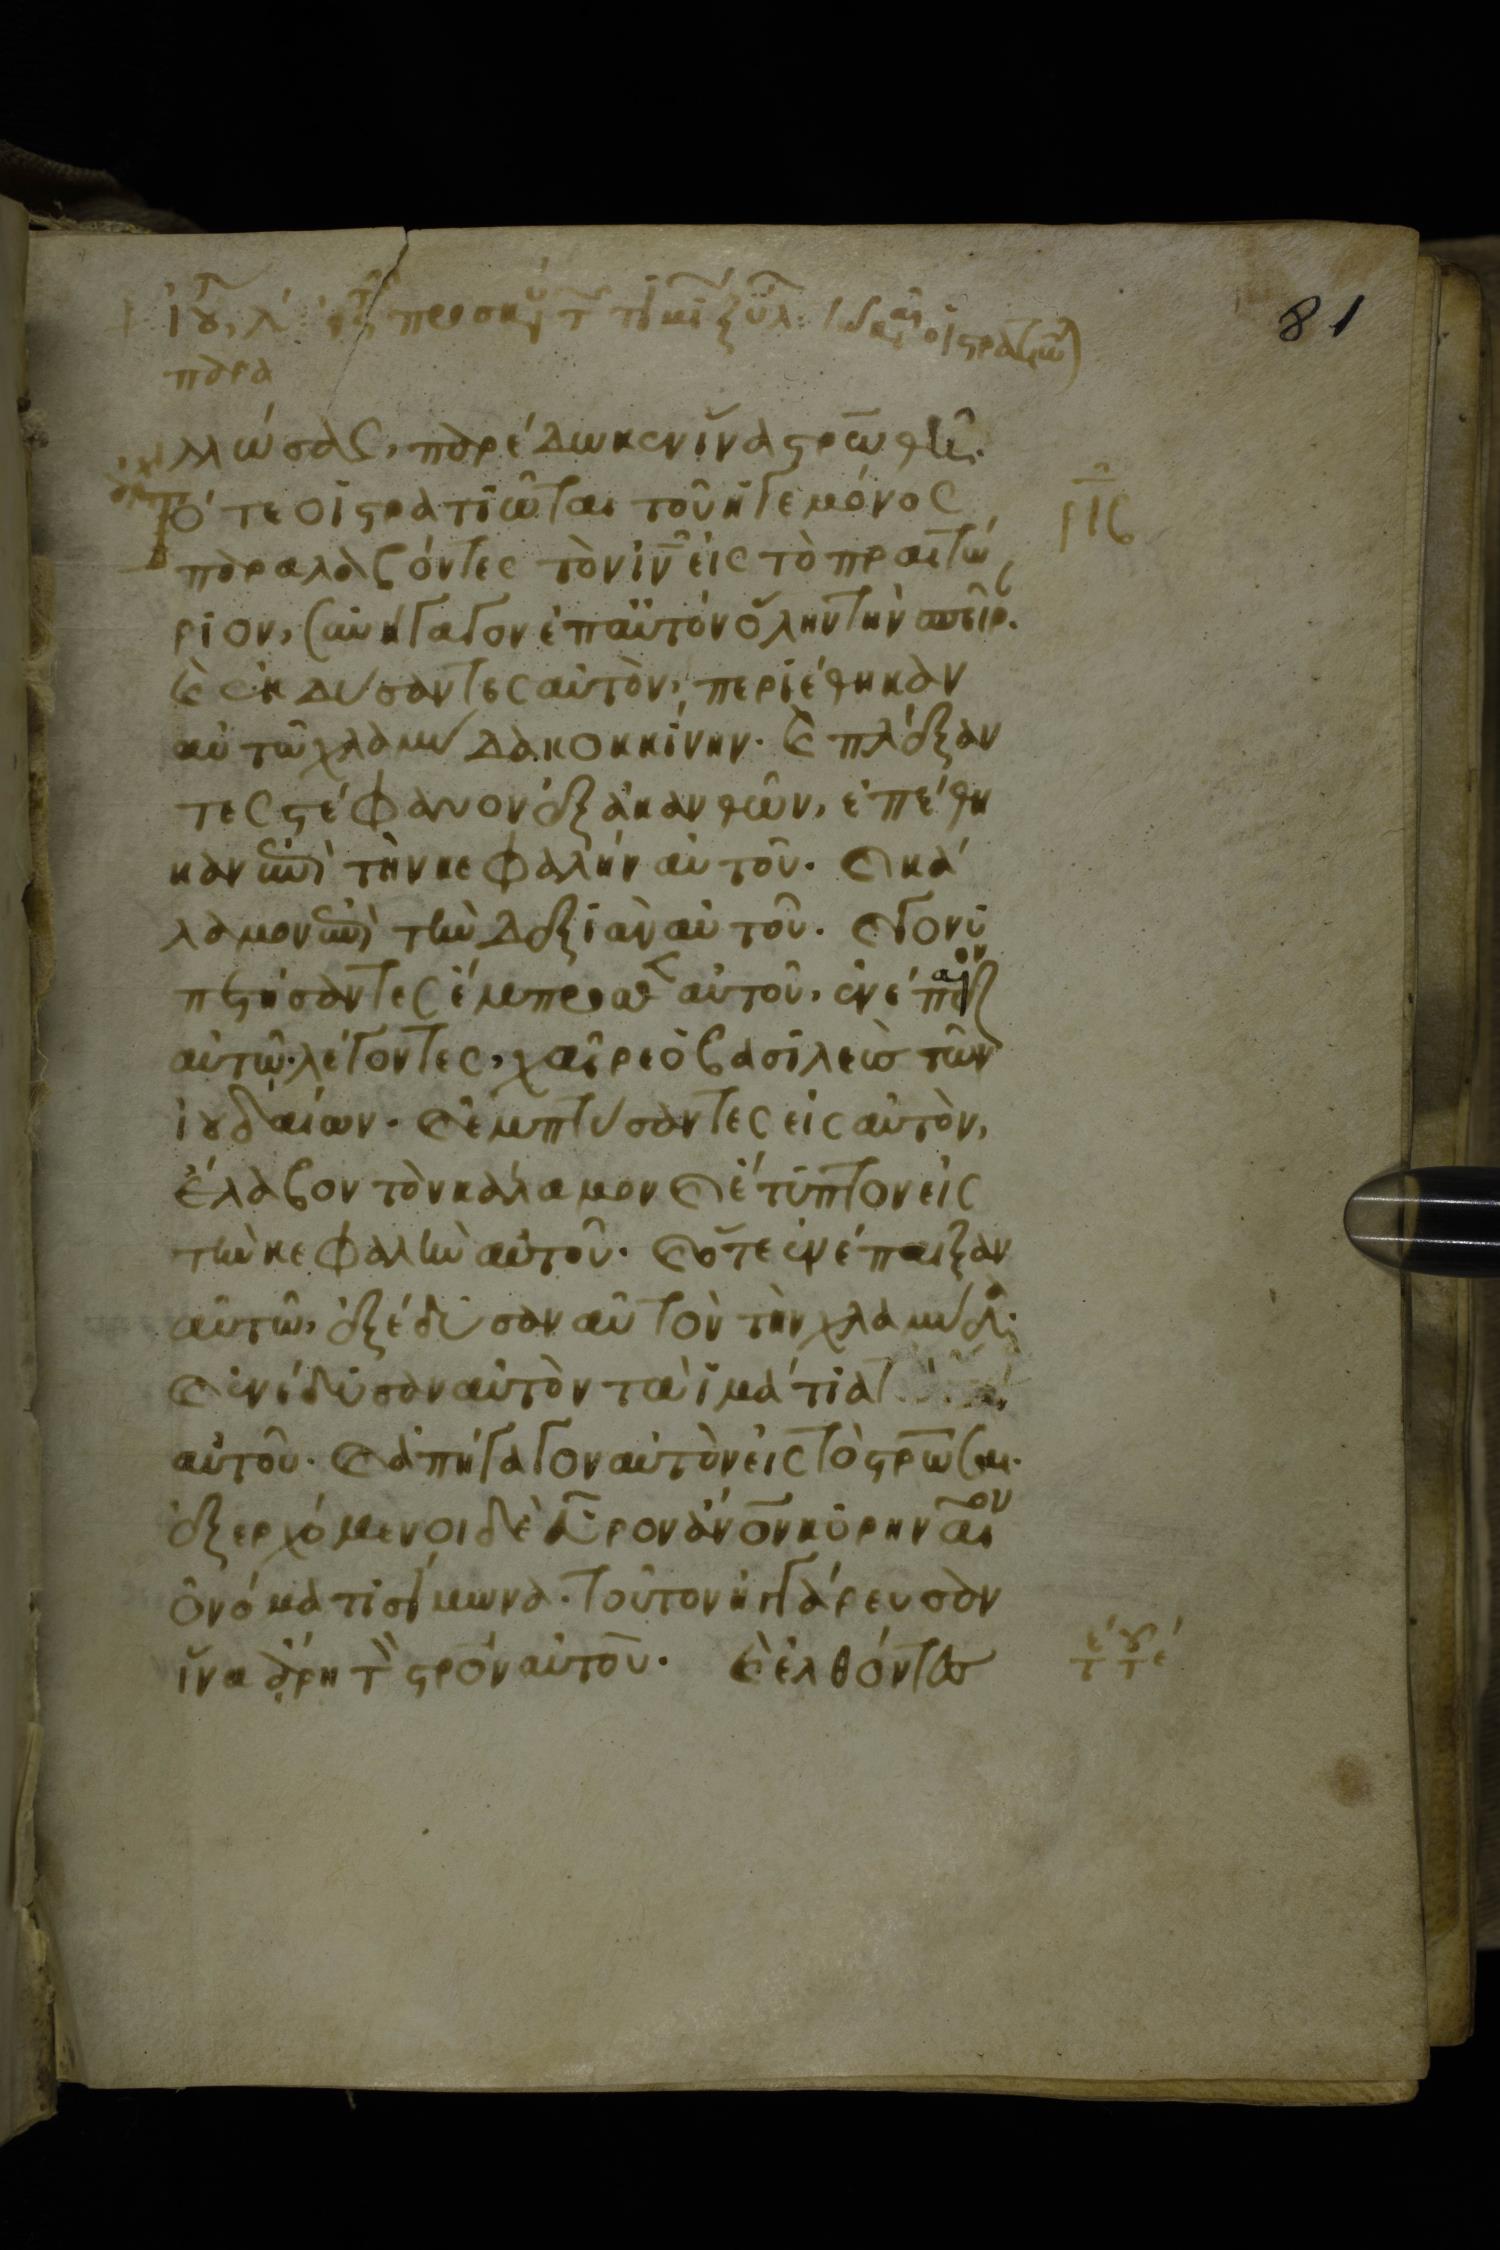 81
παρα
λώσας, παρέδωκεν ἵνα στρωθῆ.
Τότε οἱ στρατιῶται τοῦ ἡγεμόνος
παραλαβόντες τὸν ἰν εἰς τὸ πραιτώ
ριον, συνήγαγον ἐπ αὐτὸν ὅλην τὴν σπεῖρ.
Καὶ ἐκδύσαντες αὐτὸν, περιέθηκαν
αὐτῶ χλαμύδα κοκκίνην. καὶ πλέξαν
τες στέφανον ἐξ ἀκανθῶν, ἐπέθη
καν ἐπὶ τὴν κεφαλὴν αὐτοῦ. καὶ κά
λαμον ἐπὶ τὴν δεξιὰν αὐτοῦ. καὶ γονυ
πετήσαντες ἔμπροσθ αὐτοῦ, ἐνέπαιζον
αὐτῶ λέγοντες, χαῖρε ὁ βασιλεὺς τῶν
ἰουδαίων. καὶ ἐμπτύσαντες εἰς αὐτὸν,
ἔλαβον τὸν κάλαμον καὶ ἔτυπτον εἰς
τὴν κεφαλὴν αὐτοῦ. καὶ ὅτε ἐνέπαιξαν
αὐτῶ, ἐξέδυσαν αὐτὸν τὴν χλαμύδα.
καὶ ἐνέδυσαν αὐτὸν τὰ ἱμάτια
αὐτοῦ. καὶ ἀπήγαγον αὐτὸν εἰς τὸ στρῶσαι.
ἐξερχόμενοι δὲ εὗρον ἄνον κυρηναῖον
ὀνόματι σίμωνα. τοῦτον ἠγγάρευσαν
ἵνα ἄρη τὸν στρον αὐτοῦ. Καὶ ἐλθόντες